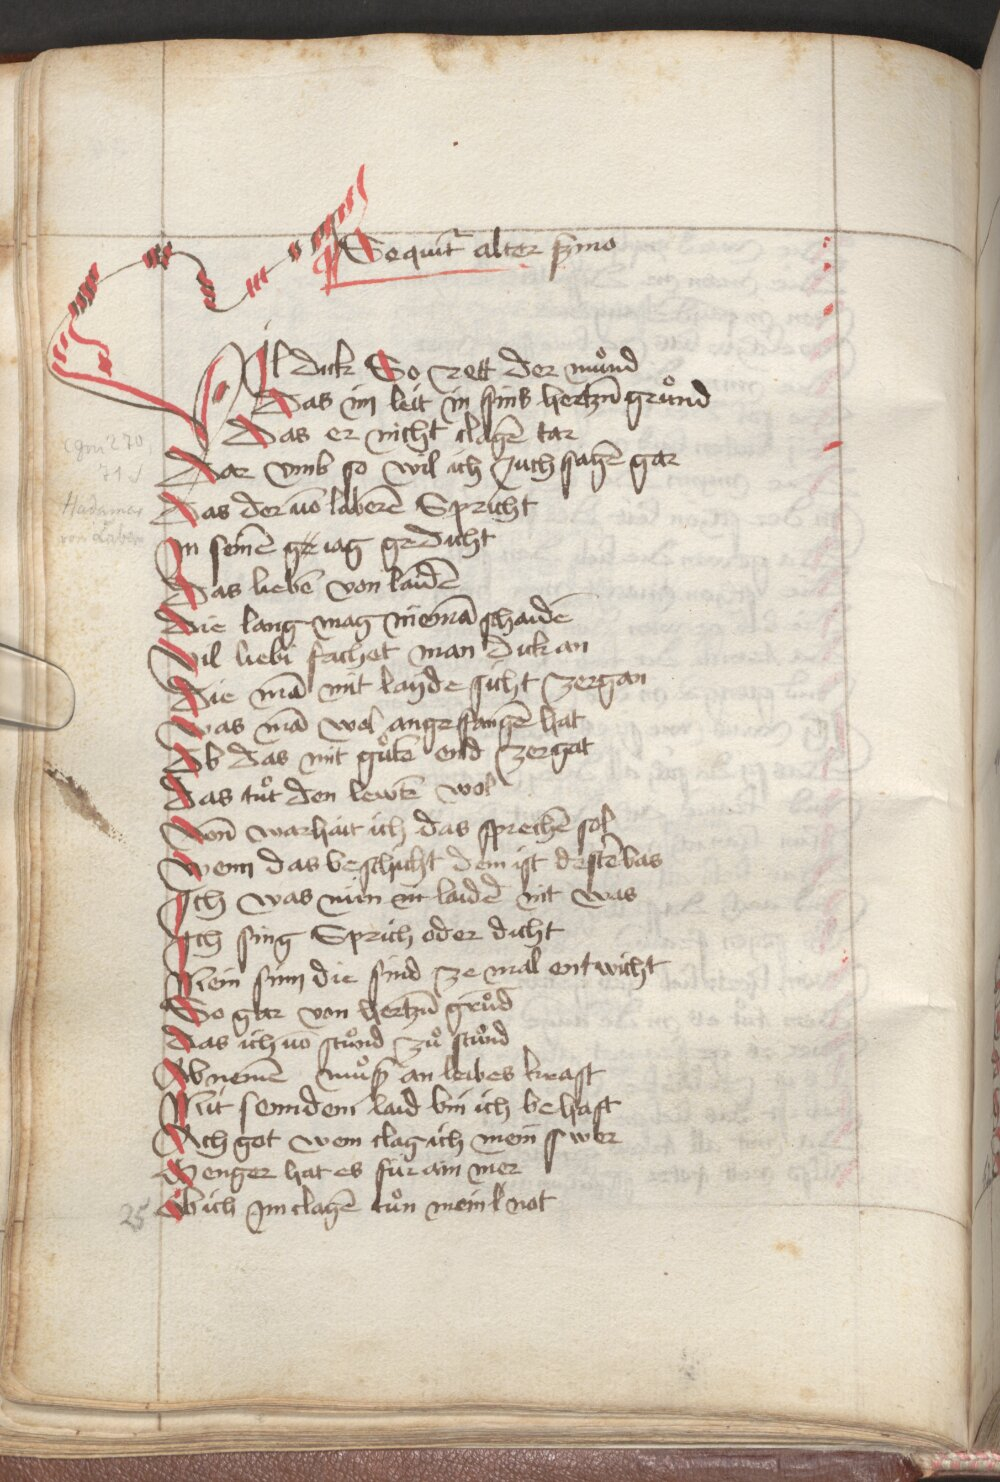 Sequit᷑ alter s̄mo
Vil dick So rett der můnd
Das im leit in sins hertzn̄ grůnd
Das er nicht clagē tar
Dar vmb so wil ich zuch sagē gar
Das der vō laberē Spricht
In seinē geiag gedicht
Das liebē von laidē
Die lang mag niemā schaidē
Vil liebi fachet man dick an
Die mā mit layde sicht zergan
Was mā wol angefangē hat
Ob das mit gůtē end zergat
Das tůt den lewtē wol
Von warhait ich das sprechē sol
Wem das beschicht dem ist dester bas
Ich was nun in laidē nit was
Ich sing Sprich oder dicht
Mein sinn die sind ze mal entwicht
So gar von hertzn̄ grūd
Das ich vō stůnd zů stůnd
Ab nemē můsz an leibes kraft
Mit senndem laid bin ich behaft
Ach got wem clag ich mein swer
Menger hat es für ain mer
Ob ich im clagē tůn mein not
Cgm 270,
71 v
Hadamar
von Laber
25